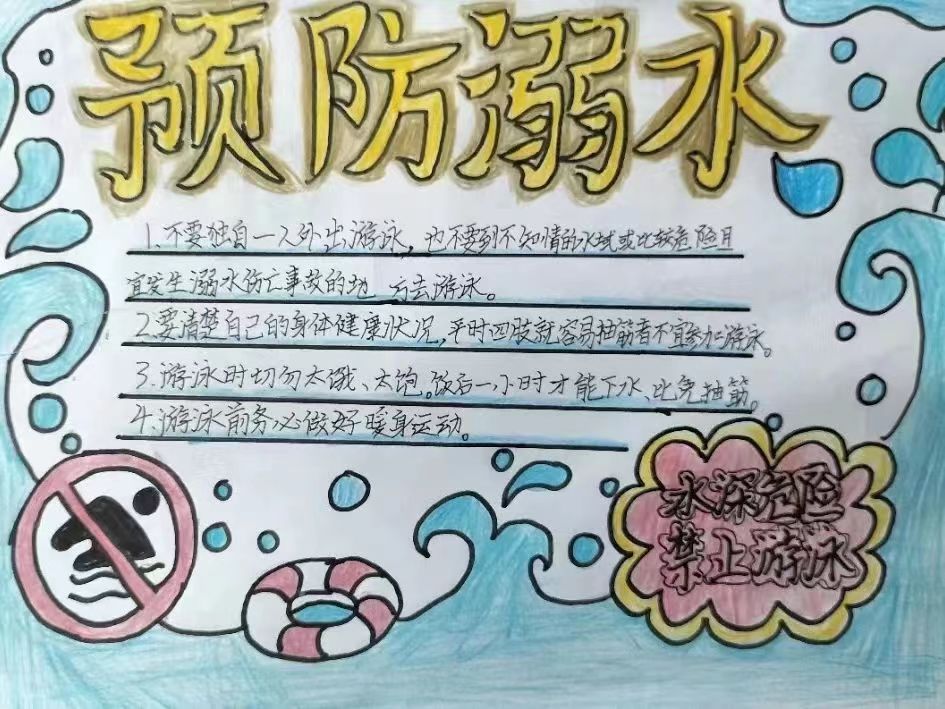 预防溺水
1.不要独自一人外出游泳,也不要到不知情的水域或比较危险且
宜发生溺水伤亡事故的地 方去游泳。
2.要清楚自己的身体健康状况,平时四肢就容易抽筋者不宜参加游泳。
3.游泳时切勿太饿、太饱。饭后一小时才能下水、比免抽筋。
4.游泳前务必做好暖身运动。
水深危险
禁止游泳